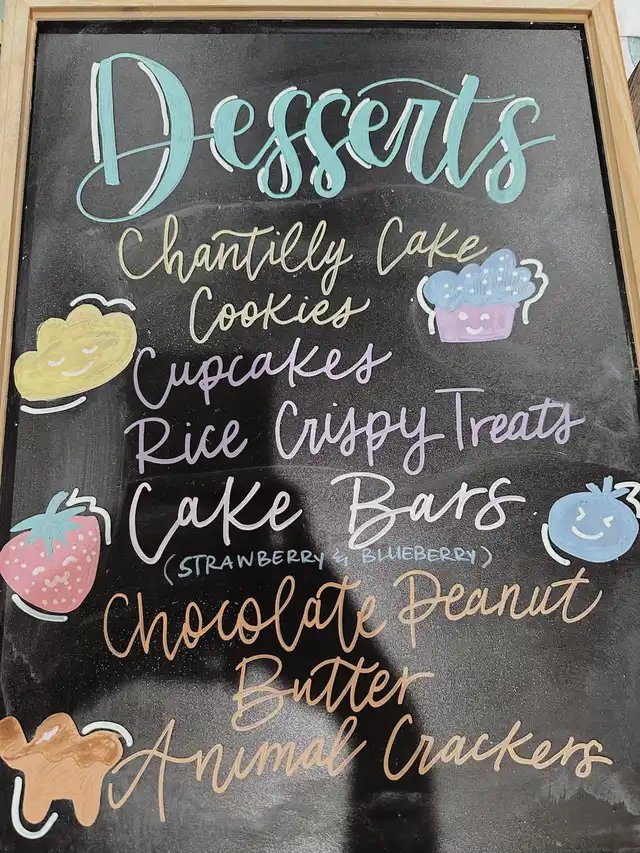 Desserts
Chantilly Cake
Cookies
Cupcakes
Rice Crispy Treats
Cake Bars
(STRAWBERRY & BLUEBERRY)
Chocolate Peanut
Butter
Animal Crackers